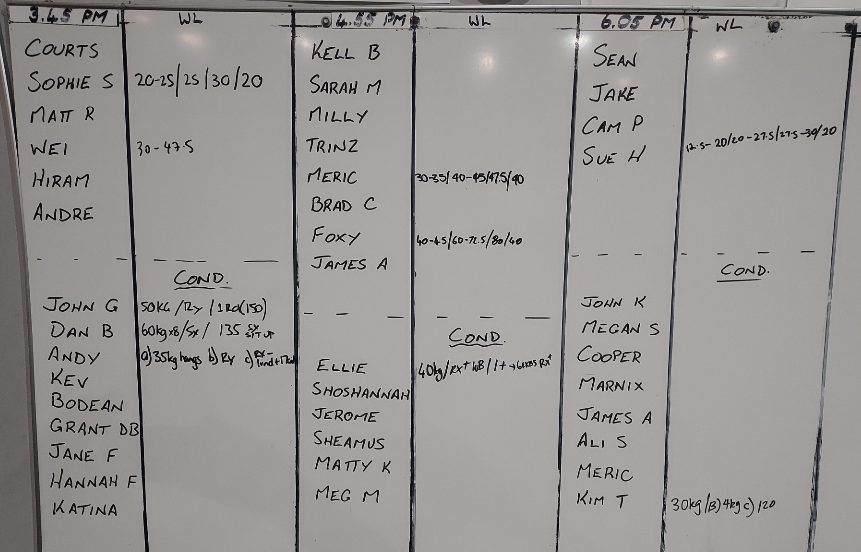 3.45 PM WL
COURTS
SOPHIE S 20-25/25/30/20
MATT R
WEI 30-47.5
HIRAM
ANDRE
COND.
JOHN G 50KG/12Y/1RD(150)
DAN B 60kgx8/5x/135 SIT UP
ANDY a)35kg hangs b)RX c)
KEV
BODEAN
GRANT DB
JANE F
HANNAH F
KATINA
4.55 PM WL
KELL B
SARAH M
MILLY
TRINZ
MERIC 30-35/40-45/47.5/40
BRAD C
FOXY 40-45/60-72.5/80/40
JAMES A
COND.
ELLIE 40kg/RX+
SHOSHANNAH
JEROME
SHEAMUS
MATTY K
MEG M
6.05 PM WL
SEAN
JAKE
CAM P
SUE H 12.5-20/20-27.5/27.5-30/20
COND.
JOHN K
MEGAN S
COOPER
MARNIX
JAMES A
ALI S
MERIC
KIM T 30kg/B)4kg c)120